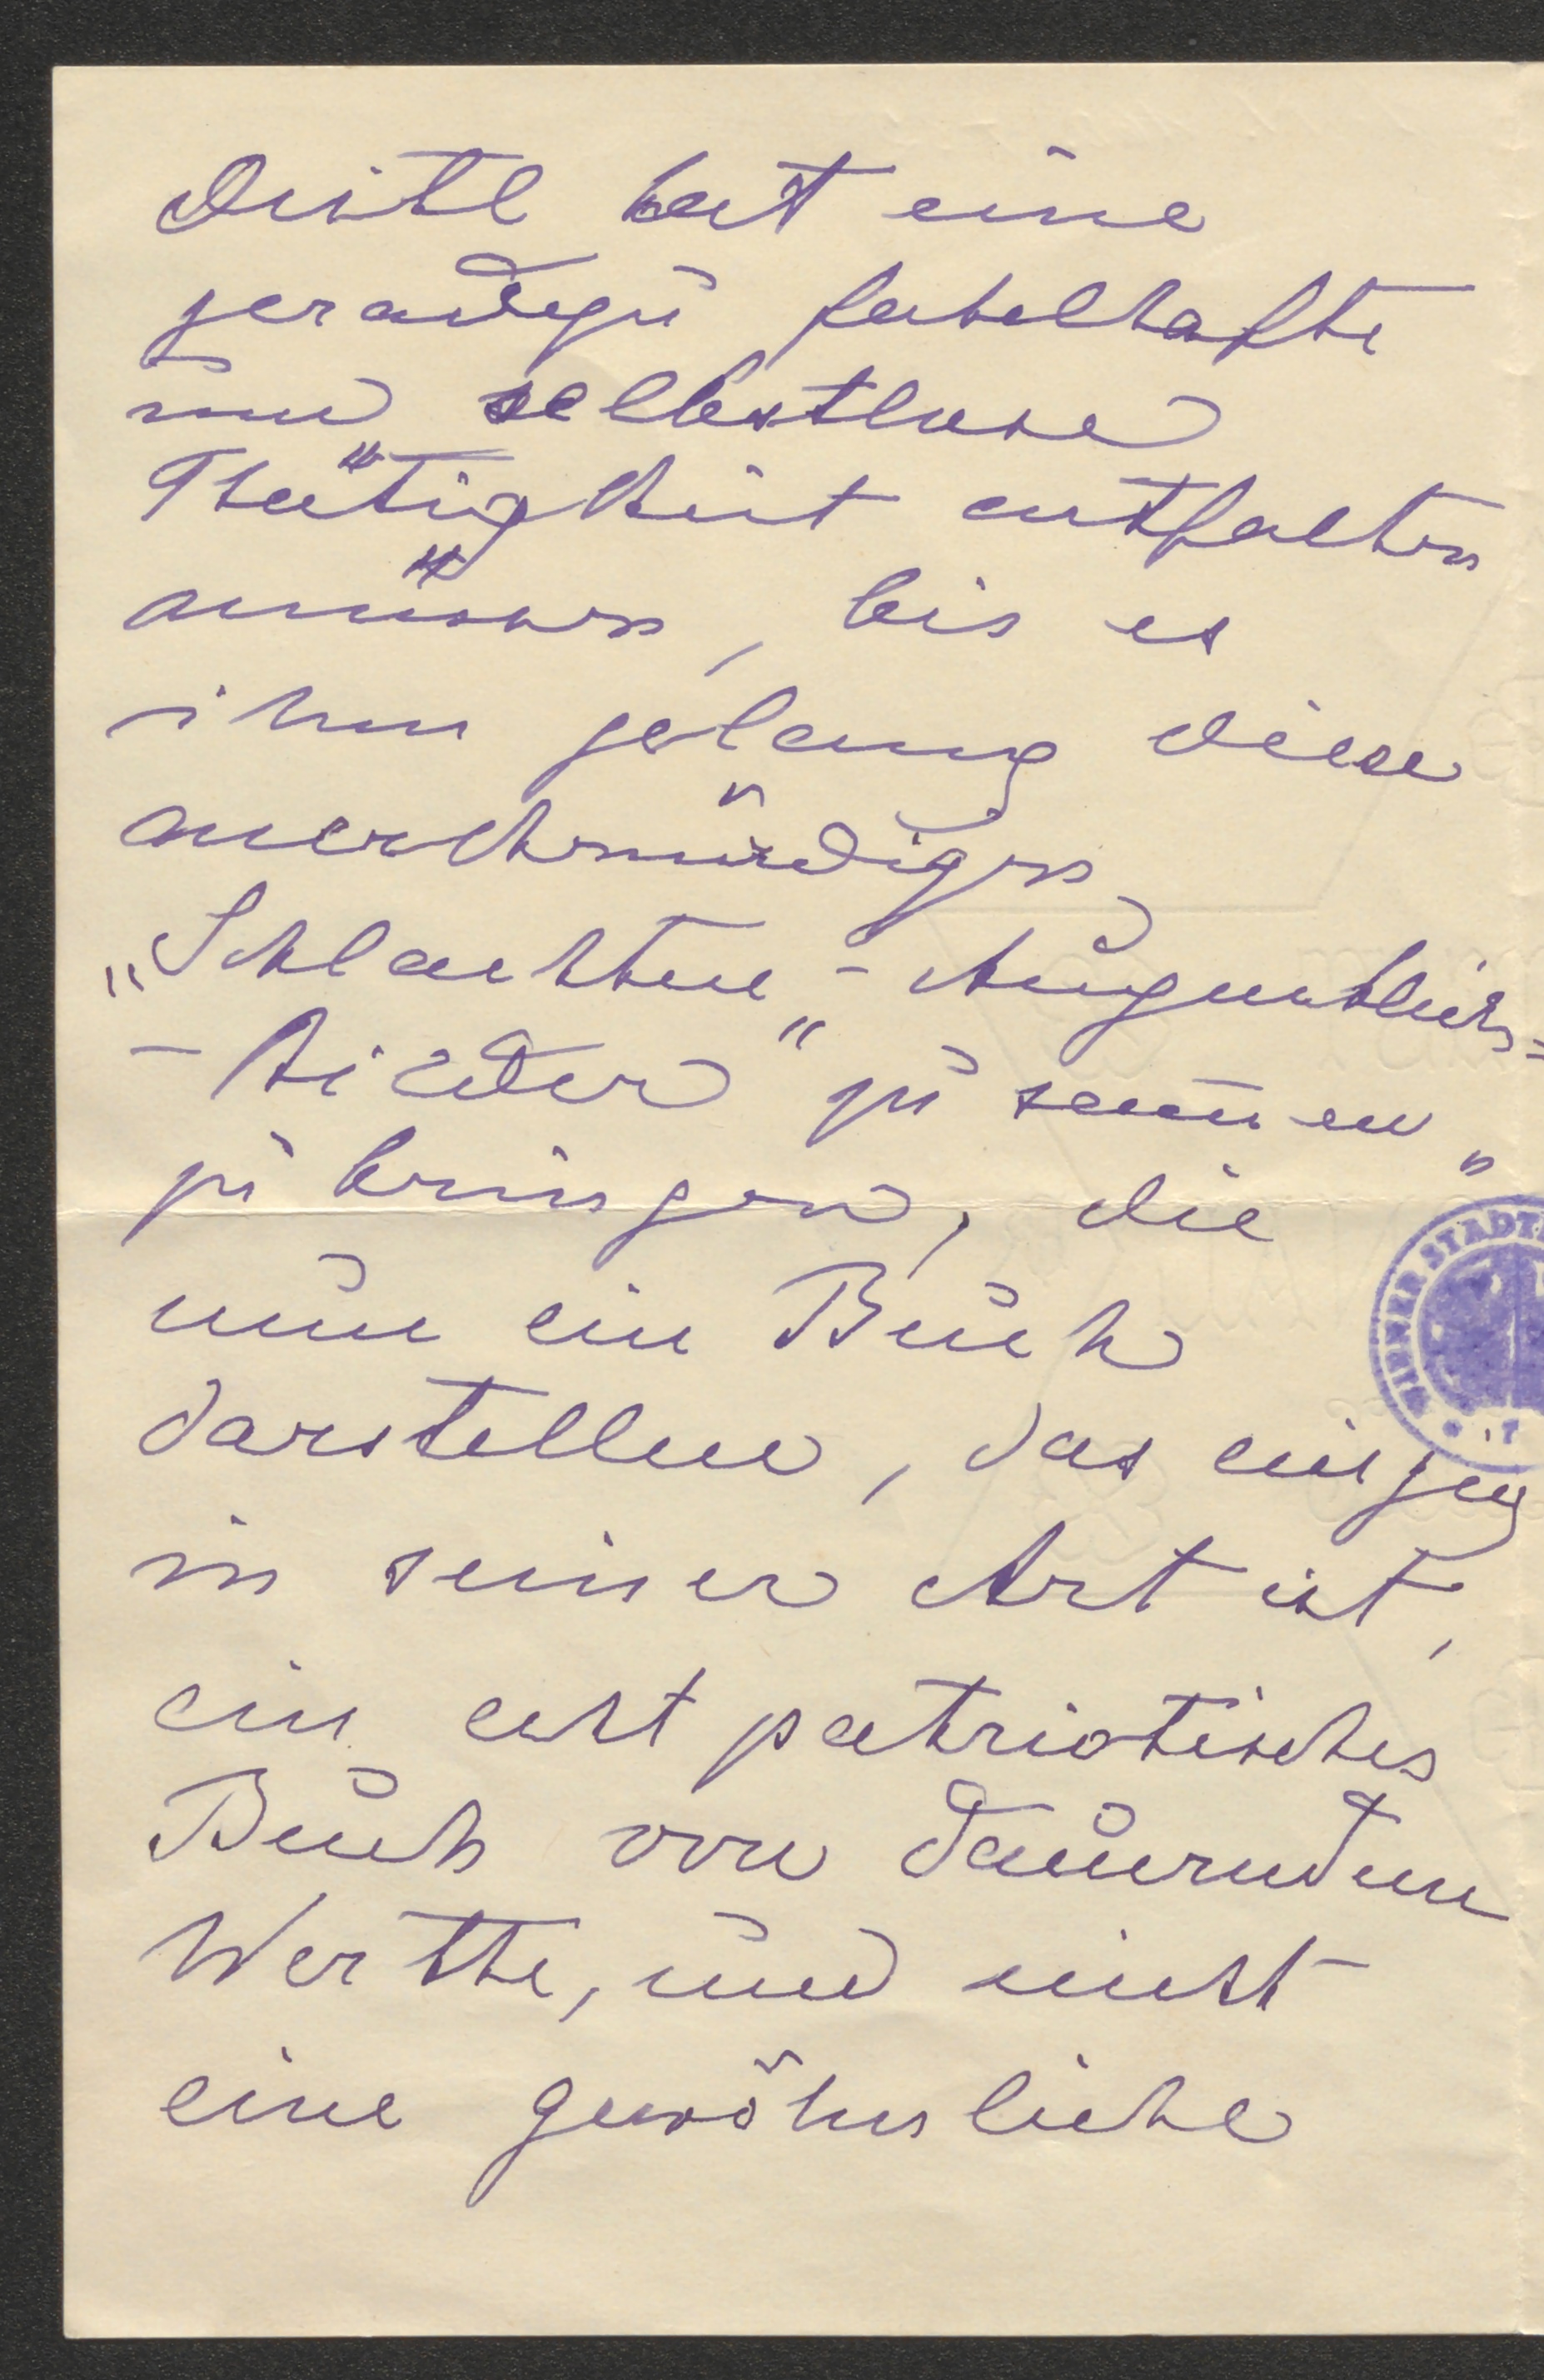 hat eine
geradezu fabelhafte
und selbstlose
Thätigkeit entfalten
müssen, bis es
ihm gelang diese
merkwürdigen
„Schlachten-Augenblicks-
-Bilder“ zusammen
zu bringen, die
nun ein Buch
darstellen, das einzig
in seiner Art ist,
ein echt patriotisches
Buch von dauerndem
Werthe, und nicht
eine gewöhnliche
WIENER STADT